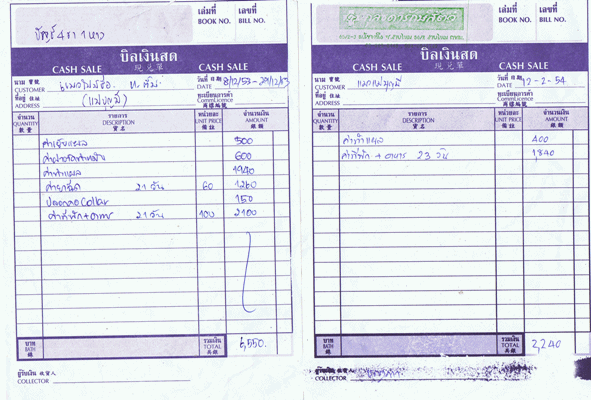 เล่มที่ เลขที่
BOOK NO. BILL NO.
บิลเงินสด
CASH SALE 現兌單 CASH SALE
นาม 寶號
CUSTOMER
วันที่ 日期
DATE 8/12/53 - 29/12/53
ที่อยู่ 住址
ADDRESS
ทะเบียนการค้า
Comm.Licence
商標編號
จำนวน
QUANTITY
數量
รายการ
DESCRIPTION
貨名
หน่วยละ
UNIT PRICE
備註
จำนวนเงิน
AMOUNT
銀額
ค่าเย็บแผล 500
600
ค่าทำแผล 1940
ค่ายาฉีด 21 วัน 60 1260
ปลอกคอ Collar 150
ค่าที่พัก + อาหาร 21 วัน 100 2100
บาท
BATH
銖
รวมเงิน
TOTAL
共銀
6,550.
ผู้รับเงิน 收貨人
COLLECTOR
เล่มที่ เลขที่
BOOK NO. BILL NO.
บิลเงินสด
CASH SALE 現兌單 CASH SALE
นาม 寶號
CUSTOMER
วันที่ 日期
DATE 12-2-54
ที่อยู่ 住址
ADDRESS
ทะเบียนการค้า
Comm.Licence
商標編號
จำนวน
QUANTITY
數量
รายการ
DESCRIPTION
貨名
หน่วยละ
UNIT PRICE
備註
จำนวนเงิน
AMOUNT
銀額
ค่าทำแผล 400
ค่าที่พัก + อาหาร 23 วัน 1840
บาท
BATH
銖
รวมเงิน
TOTAL
共銀
2,240
ผู้รับเงิน 收貨人
COLLECTOR